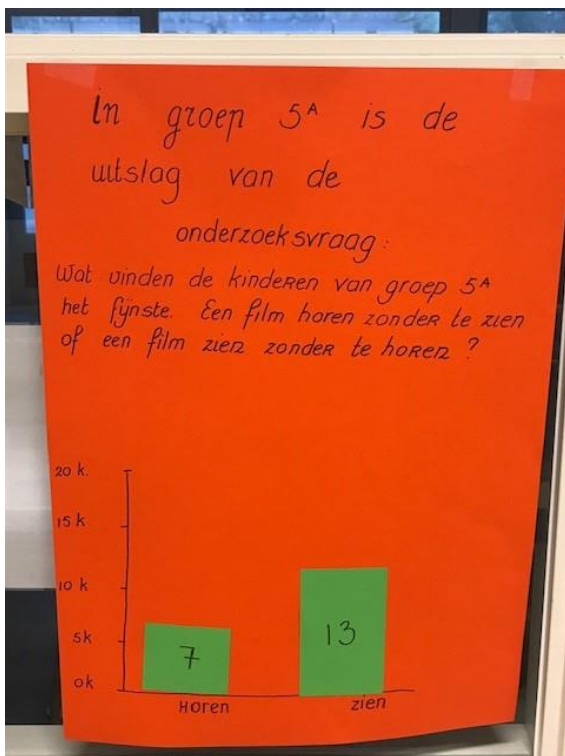 In groep 5A is de
uitslag van de
onderzoeksvraag:
Wat vinden de kinderen van groep 5A
het fijnste. Een film horen zonder te zien
of een film zien zonder te horen?
20 k.
15 k
10 k
5 k
0 k
7
13
Horen
zien